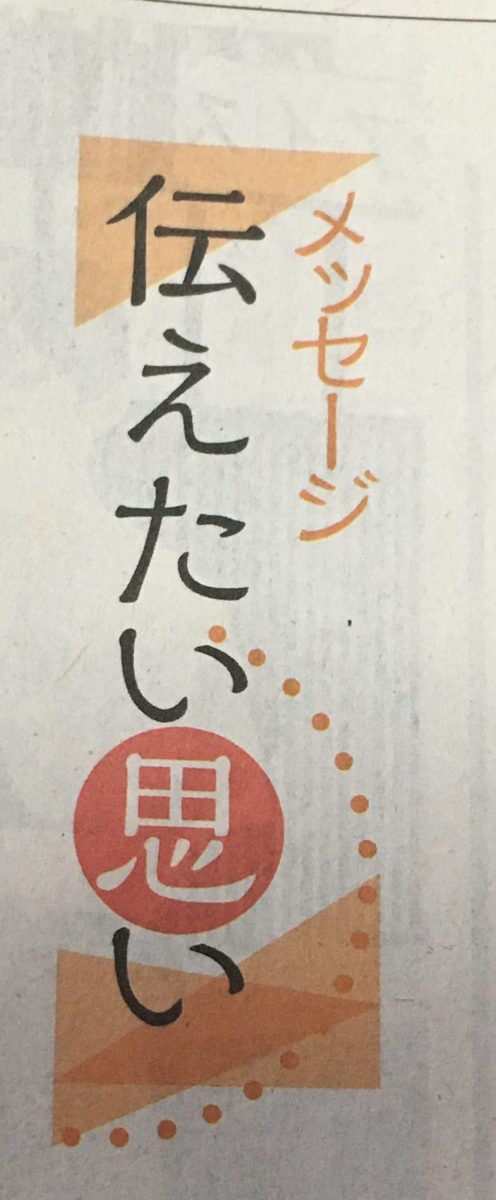 メッセージ
伝えたい思い